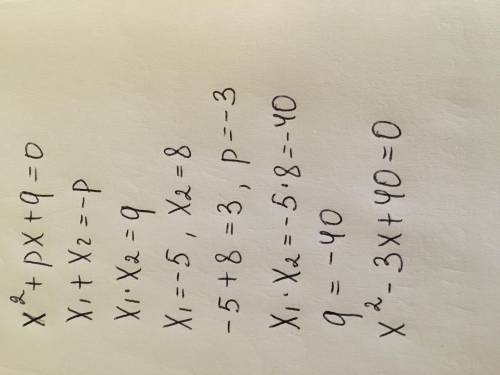 x² + px + q = 0
x₁ + x₂ = -p
x₁ · x₂ = q
x₁ = -5, x₂ = 8
-5 + 8 = 3, p = -3
x₁ · x₂ = -5 · 8 = -40
q = -40
x² - 3x + 40 = 0